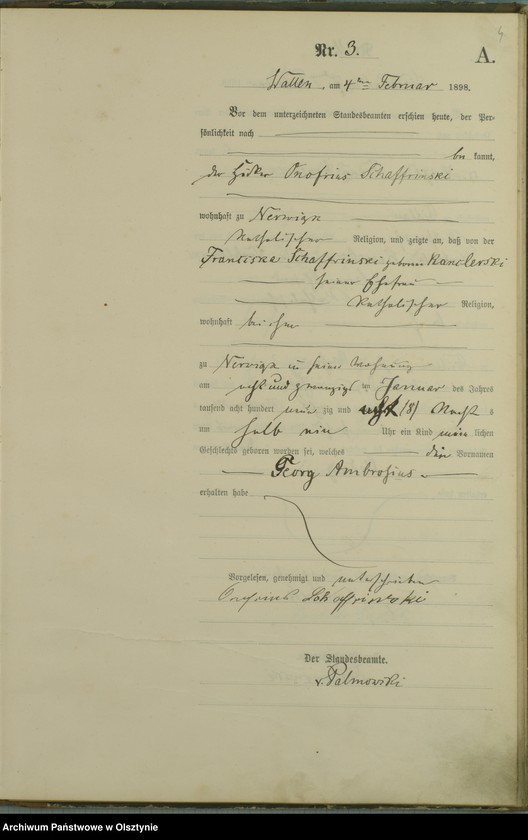 4
Nr. 3.
A.
am 4ten Februar 1898.
Vor dem unterzeichneten Standesbeamten erschien heute, der Per-
sönlichkeit nach
be kannt,
der Onofrius Schaffrinski
wohnhaft zu Nerwigk
katholischer Religion, und zeigte an, daß von der
Franciska Schaffrinski geborene
seiner Ehefrau
katholischer Religion,
wohnhaft bei ihm
zu Nerwigk in seiner Wohnung
am acht und zwanzigs ten Januar des Jahres
tausend acht hundert neun zig und acht (8) Nacht s
um halb ein Uhr ein Kind männ lichen
Geschlechts geboren worden sei, welches die Vornamen
Georg Ambrosius
erhalten habe
Vorgelesen, genehmigt und unterschrieben
Onofrius Schaffrinski
Der Standesbeamte.
v. Palmowski
Archiwum Państwowe w Olsztynie